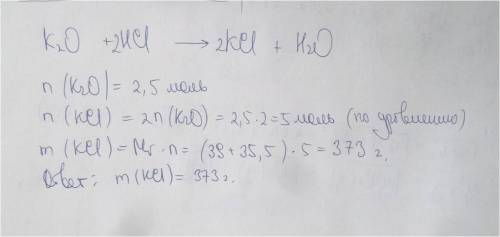 K₂O + 2HCl → 2KCl + H₂O
n (K₂O) = 2,5 моль
n (KCl) = 2n (K₂O) = 2,5 · 2 = 5 моль (по уравнению)
m (KCl) = Mr · n = (39 + 35,5) · 5 = 373 г.
Ответ: m (KCl) = 373 г.